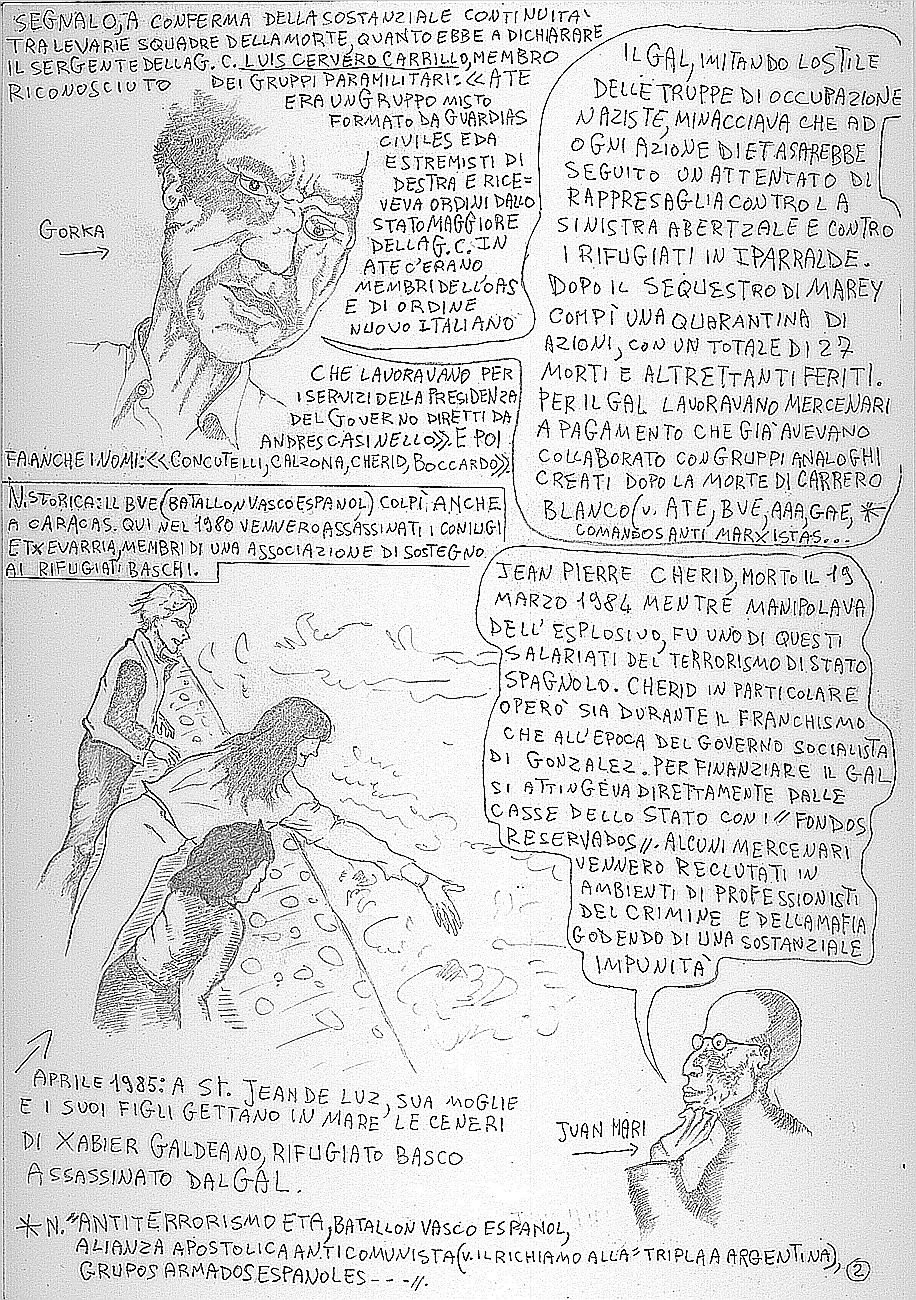 SEGNALO, A CONFERMA DELLA SOSTANZIALE CONTINUITA'
TRA LE VARIE SQUADRE DELLA MORTE, QUANTO EBBE A DICHIARARE
IL SERGENTE DELLA G. C. LUIS CERVERO CARRILLO, MEMBRO
RICONOSCIUTO DEI GRUPPI PARAMILITARI: «ATE
ERA UN GRUPPO MISTO
FORMATO DA GUARDIAS
CIVILES E DA
ESTREMISTI DI
DESTRA E RICE=
VEVA ORDINI DALLO
STATO MAGGIORE
DELLA G. C. IN
ATE C'ERANO
MEMBRI DELL'OAS
E DI ORDINE
NUOVO ITALIANO
CHE LAVORAVANO PER
I SERVIZI DELLA PRESIDENZA
DEL GOVERNO DIRETTI DA
ANDRES CASINELLO». E POI
FA ANCHE I NOMI: «CONCUTELLI, CALZONA, CHERID, BOCCARDO».
GORKA
IL GAL, IMITANDO LO STILE
DELLE TRUPPE DI OCCUPAZIONE
NAZISTE, MINACCIAVA CHE AD
OGNI AZIONE DI ETA SAREBBE
SEGUITO UN ATTENTATO DI
RAPPRESAGLIA CONTRO LA
SINISTRA ABERTZALE E CONTRO
I RIFUGIATI IN IPARRALDE.
DOPO IL SEQUESTRO DI MAREY
COMPÌ UNA QUARANTINA DI
AZIONI, CON UN TOTALE DI 27
MORTI E ALTRETTANTI FERITI.
PER IL GAL LAVORAVANO MERCENARI
A PAGAMENTO CHE GIÀ AVEVANO
COLLABORATO CON GRUPPI ANALOGHI
CREATI DOPO LA MORTE DI CARRERO
BLANCO (v. ATE, BVE, AAA, GAE, *
COMANDOS ANTI MARXISTAS...
N. STORICA: IL BVE (BATALLON VASCO ESPANOL) COLPÌ ANCHE
A CARACAS. QUI NEL 1980 VENNERO ASSASSINATI I CONIUGI
ETXEVARRIA, MEMBRI DI UNA ASSOCIAZIONE DI SOSTEGNO
AI RIFUGIATI BASCHI.
JEAN PIERRE CHERID, MORTO IL 19
MARZO 1984 MENTRE MANIPOLAVA
DELL'ESPLOSIVO, FU UNO DI QUESTI
SALARIATI DEL TERRORISMO DI STATO
SPAGNOLO. CHERID IN PARTICOLARE
OPERÒ SIA DURANTE IL FRANCHISMO
CHE ALL'EPOCA DEL GOVERNO SOCIALISTA
DI GONZALEZ. PER FINANZIARE IL GAL
SI ATTINGEVA DIRETTAMENTE DALLE
CASSE DELLO STATO CON I "FONDOS
RESERVADOS". ALCUNI MERCENARI
VENNERO RECLUTATI IN
AMBIENTI DI PROFESSIONISTI
DEL CRIMINE E DELLA MAFIA
GODENDO DI UNA SOSTANZIALE
IMPUNITÀ
JUAN MARI
APRILE 1985: A St. JEAN DE LUZ, SUA MOGLIE
E I SUOI FIGLI GETTANO IN MARE LE CENERI
DI XABIER GALDEANO, RIFUGIATO BASCO
ASSASSINATO DAL GAL.
* N. "ANTITERRORISMO ETA, BATALLON VASCO ESPANOL,
ALIANZA APOSTOLICA ANTICOMUNISTA (v. IL RICHIAMO ALLA "TRIPLA A ARGENTINA),
GRUPOS ARMADOS ESPANOLES - - - ".
2